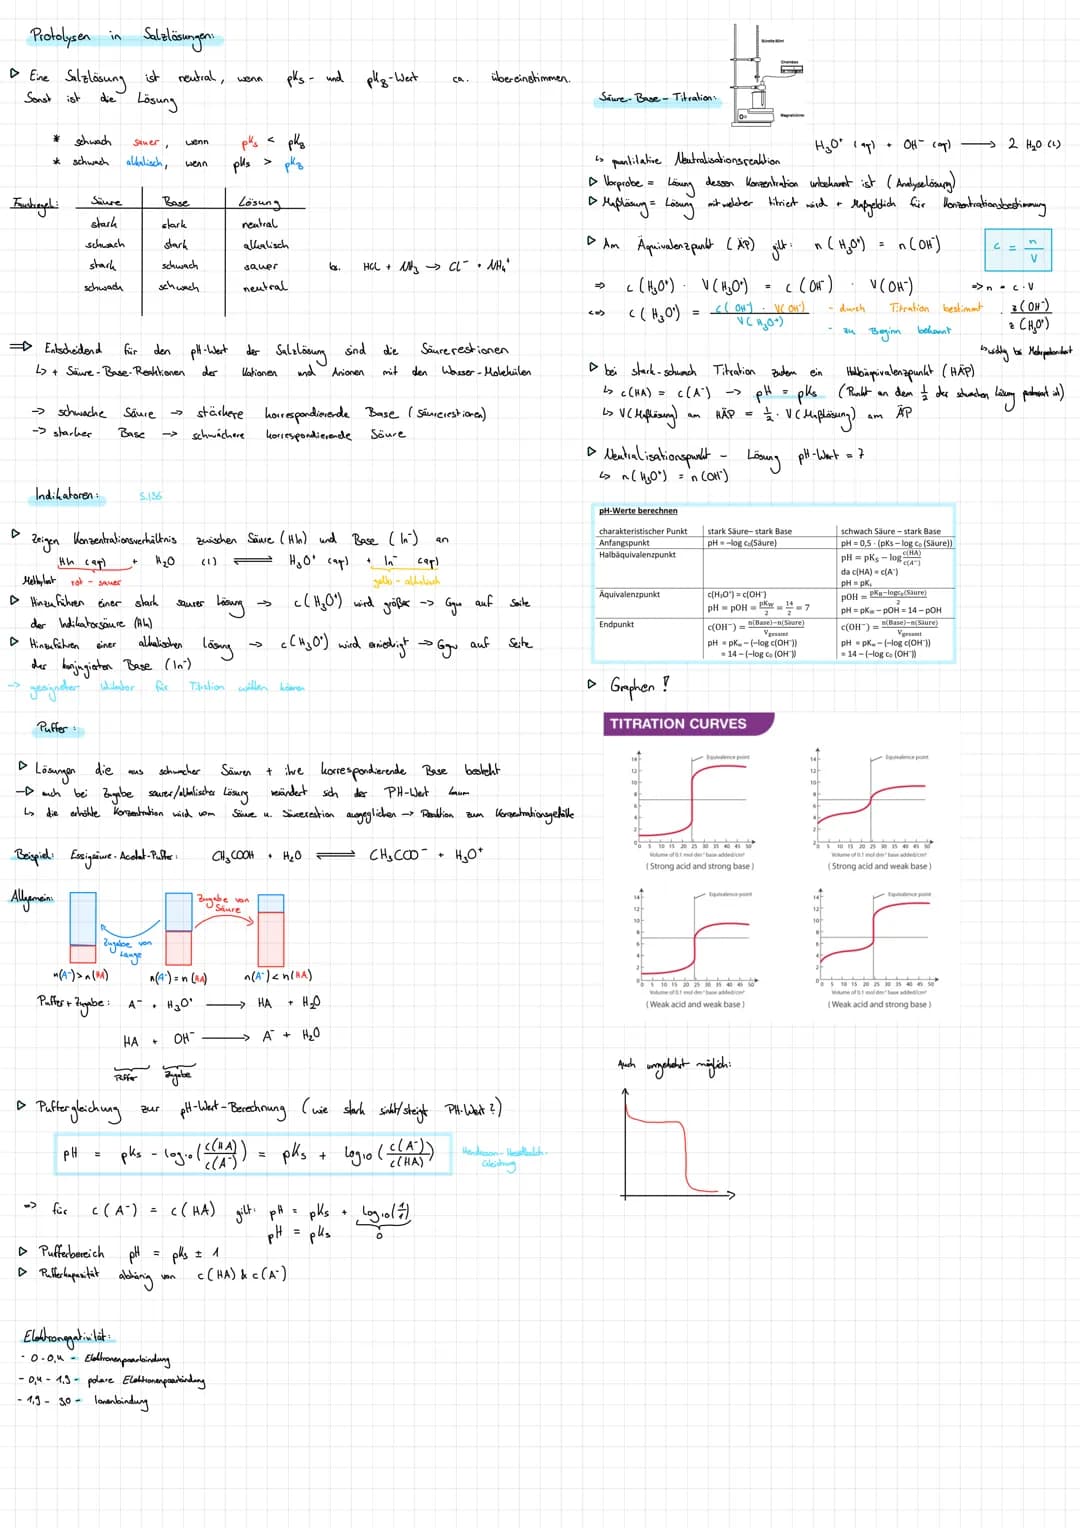 Protolysen in Salzlösungen:
▷ Eine Salzlösung ist neutral, wenn pKs- und pKB-Wert ca. übereinstimmen.
Sonst ist die Lösung
* schwach sauer, wenn pKs < pKB
* schwach alkalisch, wenn pKs > pKB
Faustregel:
Säure Base Lösung
stark stark neutral
schwach stark alkalisch
stark schwach sauer
schwach schwach neutral
HCl + NH₃ → Cl⁻ + NH₄⁺
=> Entscheidend für den pH-Wert der Salzlösung sind die Säurerestionen
↳ + Säure-Base-Reaktionen der Kationen und Anionen mit den Wasser-Molekülen
-> schwache Säure -> stärkere korrespondierende Base (Säurerestionen)
-> starker Base -> schwächere korrespondierende Säure
Indikatoren: S.156
▷ zeigen Konzentrationsverhältnis zwischen Säure (HIn) und Base (In⁻) an
HIn (aq) + H₂O (l) ⇌ H₃O⁺ (aq) + In⁻ (aq)
rot - sauer gelb - alkalisch
▷ Hinzuführen einer stark saurer Lösung -> c(H₃O⁺) wird größer -> Ggw auf Seite
der Indikatorsäure
▷ Hinzuführen einer alkalischen Lösung -> c(H₃O⁺) wird erniedrigt -> Ggw auf Seite
der konjugierten Base (In⁻)
-> geeigneter Indikator für Titration wählen können
Puffer:
▷ Lösungen die aus schwacher Säuren + ihre korrespondierende Base besteht
-> auch bei Zugabe saurer/alkalischer Lösung verändert sich der PH-Wert kaum
↳ die erhöhte Konzentration wird vom Säure u. Säurerestion ausgeglichen -> Reaktion zum Konzentrationsgefälle
Beispiel: Essigsäure-Acetat-Puffer: CH₃COOH + H₂O ⇌ CH₃COO⁻ + H₃O⁺
Allgemein:
Zugabe von Säure
Zugabe von Lauge
n(A⁻)>n(HA) n(A⁻)=n(HA) n(A⁻)<n(HA)
Puffer + Zugabe: A⁻ + H₃O⁺ → HA + H₂O
HA + OH⁻ → A⁻ + H₂O
Puffer Zugabe
▷ Puffergleichung zur pH-Wert-Berechnung (wie stark sinkt/steigt PH-Wert?)
pH = pKs - log₁₀(c(HA)/c(A⁻)) = pKs + log₁₀(c(A⁻)/c(HA))
Henderson-Hasselbalch-Gleichung
=> für c(A⁻) = c(HA) gilt: pH = pKs + log₁₀(1/1)
0
pH = pKs
▷ Pufferbereich pH = pKs ± 1
▷ Pufferkapazität abhänig von c(HA) & c(A⁻)
Elektronegativität:
- 0-0,4 - Elektronenpaarbindung
- 0,4 - 1,9 - polare Elektronenpaarbindung
- 1,9 - 3,0 - Ionenbindung
Säure-Base-Titration:
H₃O⁺ (aq) + OH⁻ (aq) → 2 H₂O (l)
↳ quantitative Neutralisationsreaktion
▷ Vorprobe = Lösung dessen Konzentration unbekannt ist (Analyselösung)
▷ Maßlösung = Lösung mit welcher titriert wird + Maßgeblich für Konzentrationsbestimmung
▷ Am Äquivalenzpunkt (ÄP) gilt: n(H₃O⁺) = n(OH⁻)
c = n/V
=> c(H₃O⁺) · V(H₃O⁺) = c(OH⁻) · V(OH⁻) => n = c·V
<=> c(H₃O⁺) = c(OH⁻) · V(OH⁻) / V(H₃O⁺) - durch Titration bestimmt · z(OH⁻)/z(H₃O⁺)
- zu Beginn bekannt
▷ bei stark-schwach Titration zudem ein Halbäquivalenzpunkt (HÄP)
↳ c(HA) = c(A⁻) -> pH = pKs (Punkt an dem ½ der schwachen Lösung protoniert ist)
↳ V(Maßlösung) am HÄP = ½ · V(Maßlösung) am ÄP
▷ Neutralisationspunkt - Lösung pH-Wert = 7
↳ n(H₃O⁺) = n(OH⁻)
pH-Werte berechnen
charakteristischer Punkt stark Säure– stark Base schwach Säure – stark Base
Anfangspunkt pH = –log c₀(Säure) pH = 0,5 · (pKs – log c₀ (Säure))
Halbäquivalenzpunkt pH = pKs – log c(HA)/c(A⁻)
da c(HA) = c(A⁻)
pH = pKs
Äquivalenzpunkt c(H₃O⁺) = c(OH⁻) pOH = (pKB–log c₀(Säure))/2
pH = pOH = pKw/2 = 14/2 = 7 pH = pKw – pOH = 14 – pOH
Endpunkt c(OH⁻) = (n(Base)–n(Säure))/Vgesamt c(OH⁻) = (n(Base)–n(Säure))/Vgesamt
pH = pKw – (–log c(OH⁻)) pH = pKw – (–log c(OH⁻))
= 14 – (–log c₀ (OH⁻)) = 14 – (–log c₀ (OH⁻))
▷ Graphen !
TITRATION CURVES
Equivalence point
14 12 10 8 6 4 2
0 5 10 15 20 25 30 35 40 45 50
Volume of 0.1 mol dm⁻³ base added/cm³
(Strong acid and strong base)
Equivalence point
14 12 10 8 6 4 2
0 5 10 15 20 25 30 35 40 45 50
Volume of 0.1 mol dm⁻³ base added/cm³
(Strong acid and weak base)
Equivalence point
14 12 10 8 6 4 2
0 5 10 15 20 25 30 35 40 45 50
Volume of 0.1 mol dm⁻³ base added/cm³
(Weak acid and weak base)
Equivalence point
14 12 10 8 6 4 2
0 5 10 15 20 25 30 35 40 45 50
Volume of 0.1 mol dm⁻³ base added/cm³
(Weak acid and strong base)
Auch umgekehrt möglich: